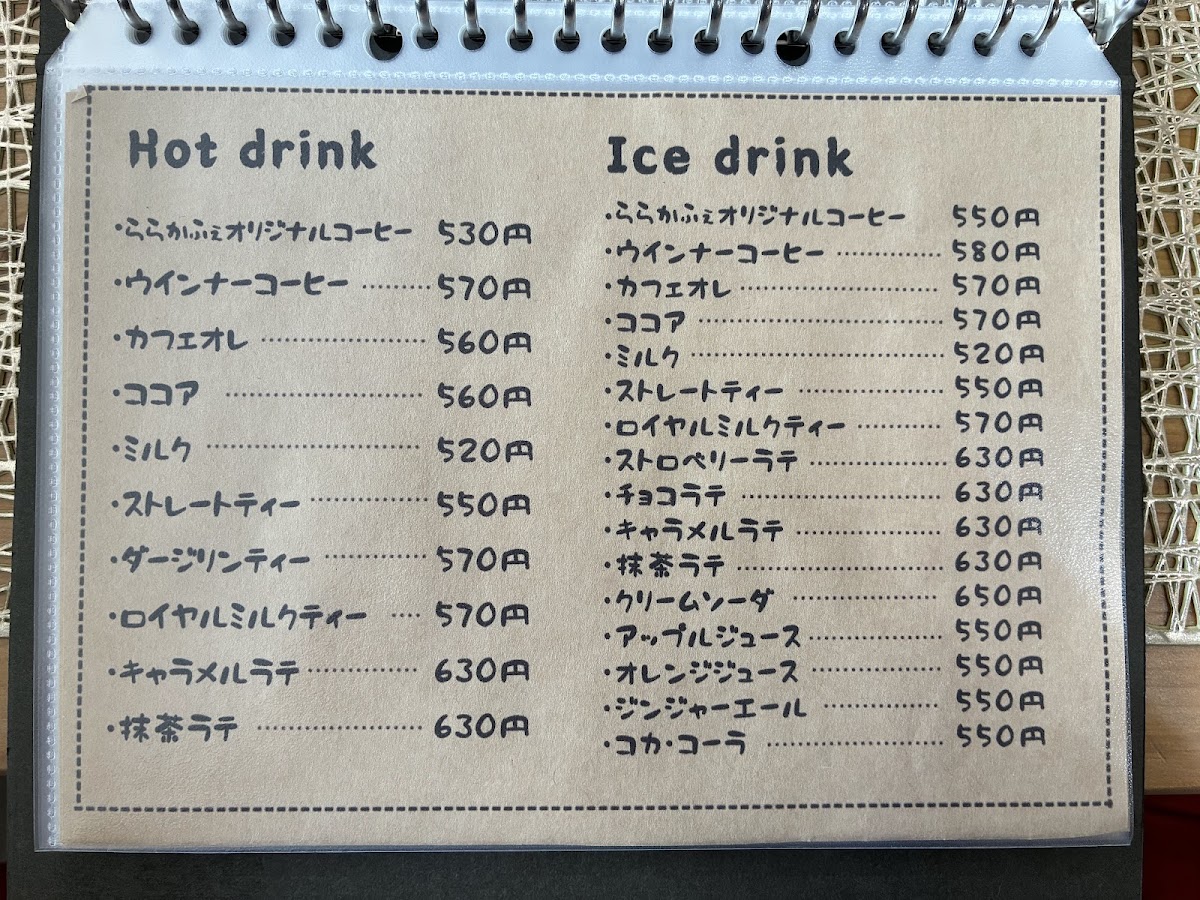 Hot drink
・ららかふぇオリジナルコーヒー 530円
・ウインナーコーヒー ………570円
・カフェオレ ……………………560円
・ココア ……………………560円
・ミルク ……………………520円
・ストレートティー ……………550円
・ダージリンティー ……………570円
・ロイヤルミルクティー …… 570円
・キャラメルラテ …………… 630円
・抹茶ラテ …………………… 630円
Ice drink
・ららかふぇオリジナルコーヒー 550円
・ウインナーコーヒー …………… 580円
・カフェオレ …………………… 570円
・ココア …………………… 570円
・ミルク …………………… 520円
・ストレートティー …………… 550円
・ロイヤルミルクティー ……… 570円
・ストロベリーラテ …………… 630円
・チョコラテ …………………… 630円
・キャラメルラテ …………… 630円
・抹茶ラテ …………………… 630円
・クリームソーダ …………… 650円
・アップルジュース …………… 550円
・オレンジジュース …………… 550円
・ジンジャーエール …………… 550円
・コカ・コーラ …………………… 550円